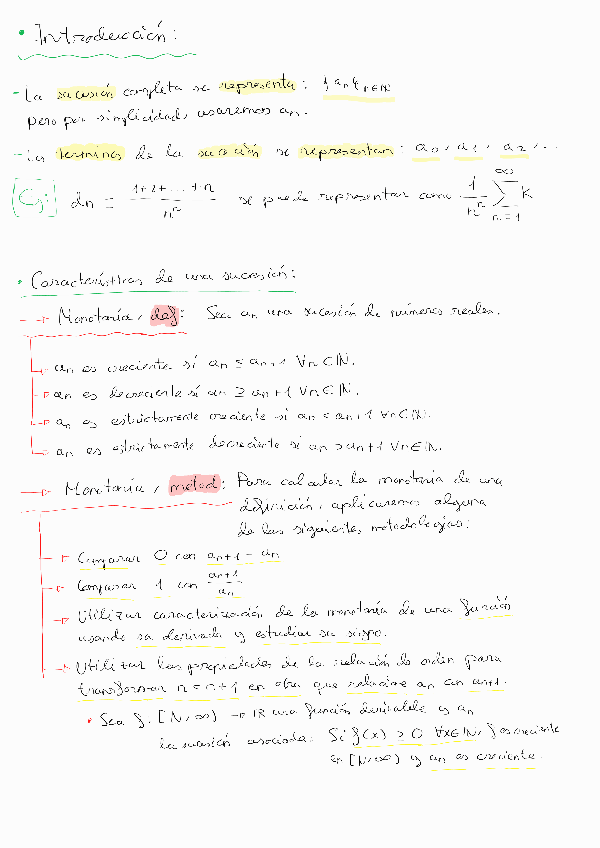 • Introducción:
- La sucesión completa se representa: {an}n∈ℕ
pero por simplicidad usaremos an.
- Los términos de la sucesión se representan: a0, a1, a2, ...
Ej: dn = (1+2+...+n)/n^n se puede representar como 1/n^n ∑_{n=1}^{∞} K
• Características de una sucesión:
→ Monotonía, def: Sea an una sucesión de números reales.
→ an es creciente si an ≤ an+1 ∀n∈ℕ.
→ an es decreciente si an ≥ an+1 ∀n∈ℕ.
→ an es estrictamente creciente si an < an+1 ∀n∈ℕ.
→ an es estrictamente decreciente si an > an+1 ∀n∈ℕ.
→ Monotonía, metod: Para calcular la monotonía de una
definición, aplicaremos alguna
de las siguientes metodologías:
→ Comparar 0 con an+1 - an
→ Comparar 1 con an+1/an
→ Utilizar caracterización de la monotonía de una función
usando su derivada y estudiar su signo.
→ Utilizar las propiedades de la relación de orden para
transformar n = n+1 en otra que relacione an con an+1.
• Sea f: [N,∞) → ℝ una función derivable y an
la sucesión asociada: Si f(x) > 0 ∀x∈ℕ, f es creciente
en [N,∞) y an es creciente.